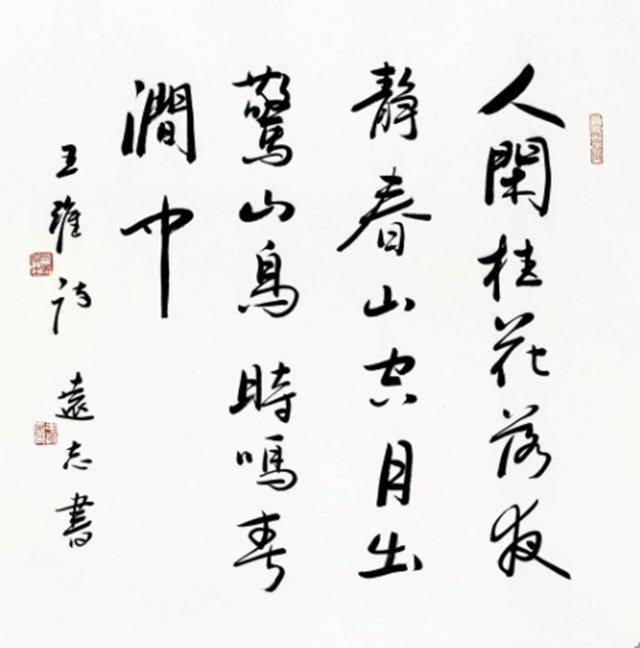 人閑桂花落夜
靜春山空月出
驚山鳥時鳴春
澗中
王維詩 遠志書